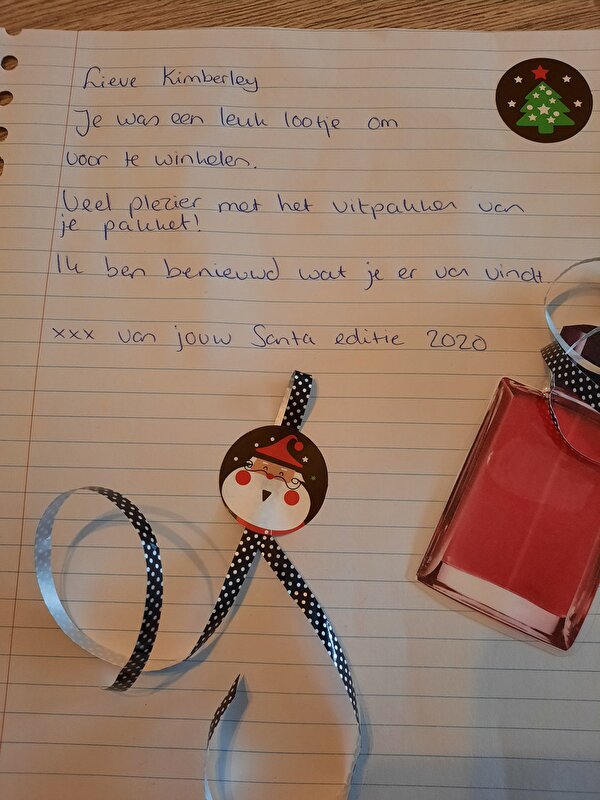 Lieve Kimberley
Je was een leuk lootje om
voor te winkelen.
Veel plezier met het uitpakken van
je pakket!
Ik ben benieuwd wat je er van vindt.
xxx van jouw Santa editie 2020